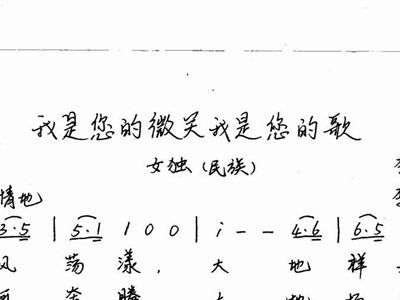 我是您的微笑我是您的歌
女独(民族)
情地
3·5 | 5·1 1 0 0 | i - - 4·6 | 6·5
风 荡 漾, 大 地 祥
奔 腾